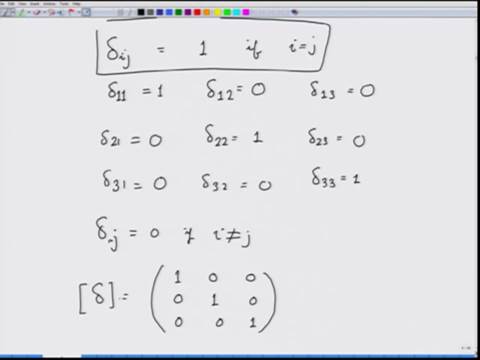 δij = 1 if i=j
δ11 = 1 δ12 = 0 δ13 = 0
δ21 = 0 δ22 = 1 δ23 = 0
δ31 = 0 δ32 = 0 δ33 = 1
δij = 0 if i≠j
[δ] = ( 1 0 0
0 1 0
0 0 1 )